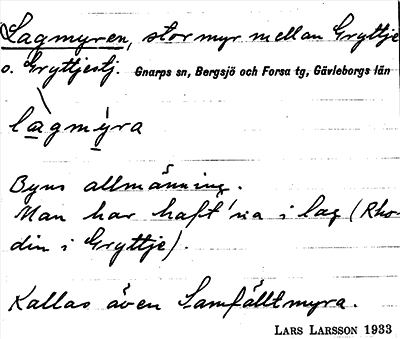 Lagmyren, stor myr mellan Gryttje
o. Gryttjestj. Gnarps sn, Bergsjö och Forsa tg, Gävleborgs län
làgmỳra
Byns allmänning.
Man har haft 'na i lag (Rho-
din i Gryttje).
Kallas även Samfälltmyra.
LARS LARSSON 1933